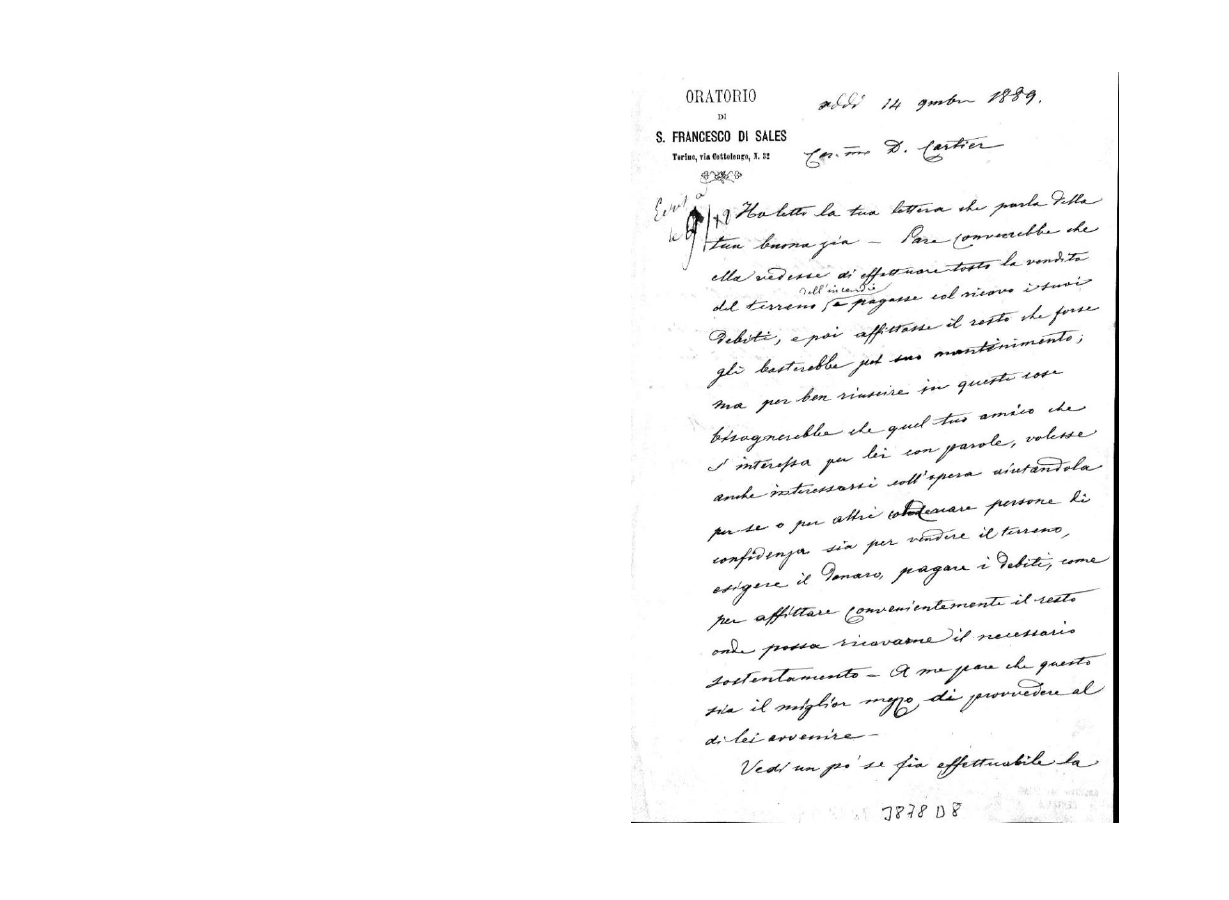 ORATORIO
DI
S. FRANCESCO DI SALES
Torino, via Cottolengo, N. 32
addì 14 9mbre 1889.
Car.mo D. Cartier
Ho letto la tua lettera che parla della
tua buona zia — Pare converrebbe che
ella vedesse di effettuare tosto la vendita
dell'incendio
del terreno, e pagasse col ricavo i suoi
debiti, e poi affittasse il resto che forse
gli basterebbe pel suo mantinimento;
ma per ben riuscire in queste cose
bisognerebbe che quel tuo amico che
s'interessa per lei con parole, volesse
anche interessarsi coll'opera aiutandola
per se o per altri persone di
confidenza sia per vendere il terreno,
esigere il denaro, pagare i debiti, come
per affittare convenientemente il resto
onde possa ricavarne il necessario
sostentamento — A me pare che questo
sia il miglior mezzo di provvedere al
di lei avvenire —
Vedi un po' se fia effettuabile la
J878 D8